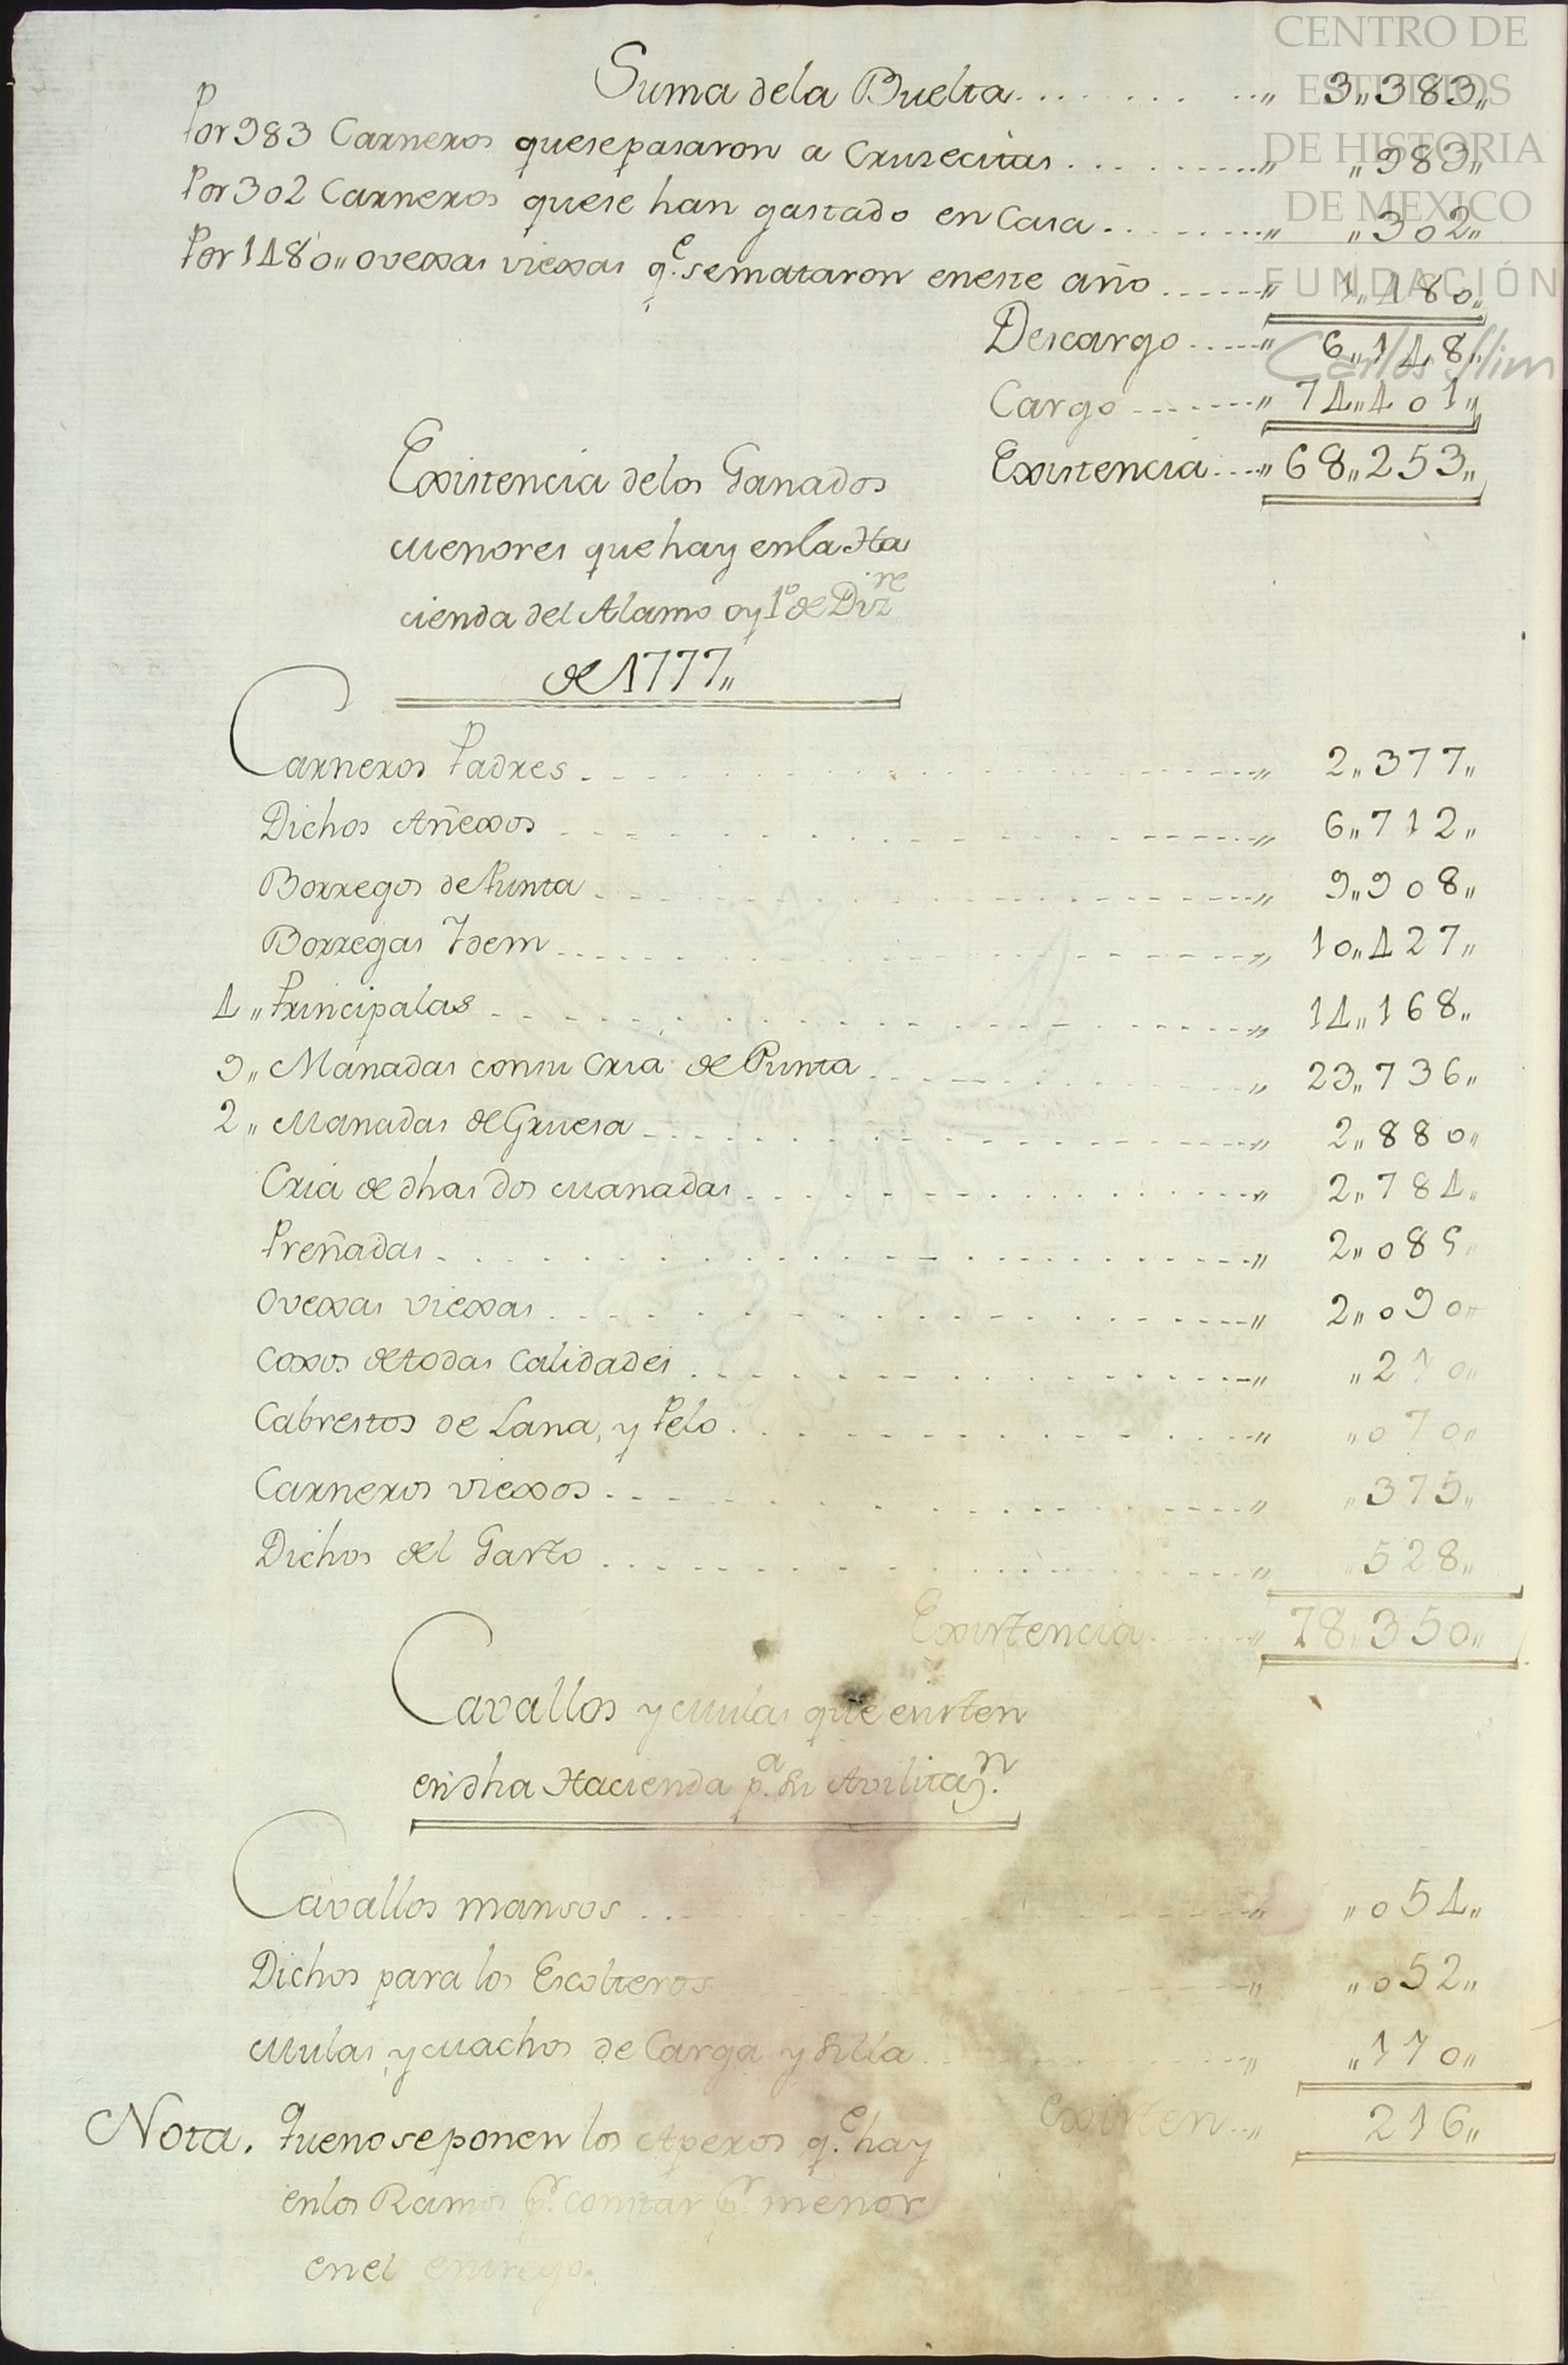 CENTRO DE
ESTUDIOS
DE HISTORIA
DE MEXICO
FUNDACIÓN
Carlos Slim
Suma dela Buelta . . . . . . . . „ 3„383„
Por 983 Carneros quese pasaron a Crusecitas . . . . . . . . „ „983„
Por 302 Carneros quese han gastado en Casa . . . . . . . . „ „302„
Por 1480„ ovexas viexas q.e se mataron eneste año . . . . . . „ 1„480„
Descargo . . . . . „ 6„148„
Cargo . . . . . . . „ 74„401„
Existencia . . . . „ 68„253„
Existencia delos Ganados
menores que hay enla Ha
cienda del Alamo oy 1º de Diz.re
de 1777„
Carneros Padres . . . . . . . . „ 2„377„
Dichos Añexos . . . . . . . . „ 6„712„
Borregos de Punta . . . . . . . . „ 9„908„
Borregas Idem . . . . . . . . „ 10„427„
4„ Principalas . . . . . . . . „ 14„168„
9„ Manadas con su Cria de Punta . . . . . . . . „ 23„736„
2„ Manadas de Gruesa . . . . . . . . „ 2„880„
Cria de dhas dos manadas . . . . . . . . „ 2„784„
Preñadas . . . . . . . . „ 2„085„
ovexas viexas . . . . . . . . „ 2„090„
coxos de todas Calidades . . . . . . . . „ „210„
Cabrestos de Lana, y Pelo . . . . . . . . „ „070„
Carneros viexos . . . . . . . . „ „375„
Dichos del Gasto . . . . . . . . „ „528„
Existencia . . . . . „ 78„350„
Cavallos y mulas que existen
en dha Hacienda p.a su Avilitaz.n
Cavallos mansos . . . . . . . . „ „054„
Dichos para los Escolteros . . . . . . . . „ „052„
Mulas, y Machos de Carga y Silla . . . . . . . . „ „110„
Existen . . . „ 216„
Nota. Queno se ponen los Aperos q.e hay
enlos Ramos p.r constar p.r menor
en el entrego.